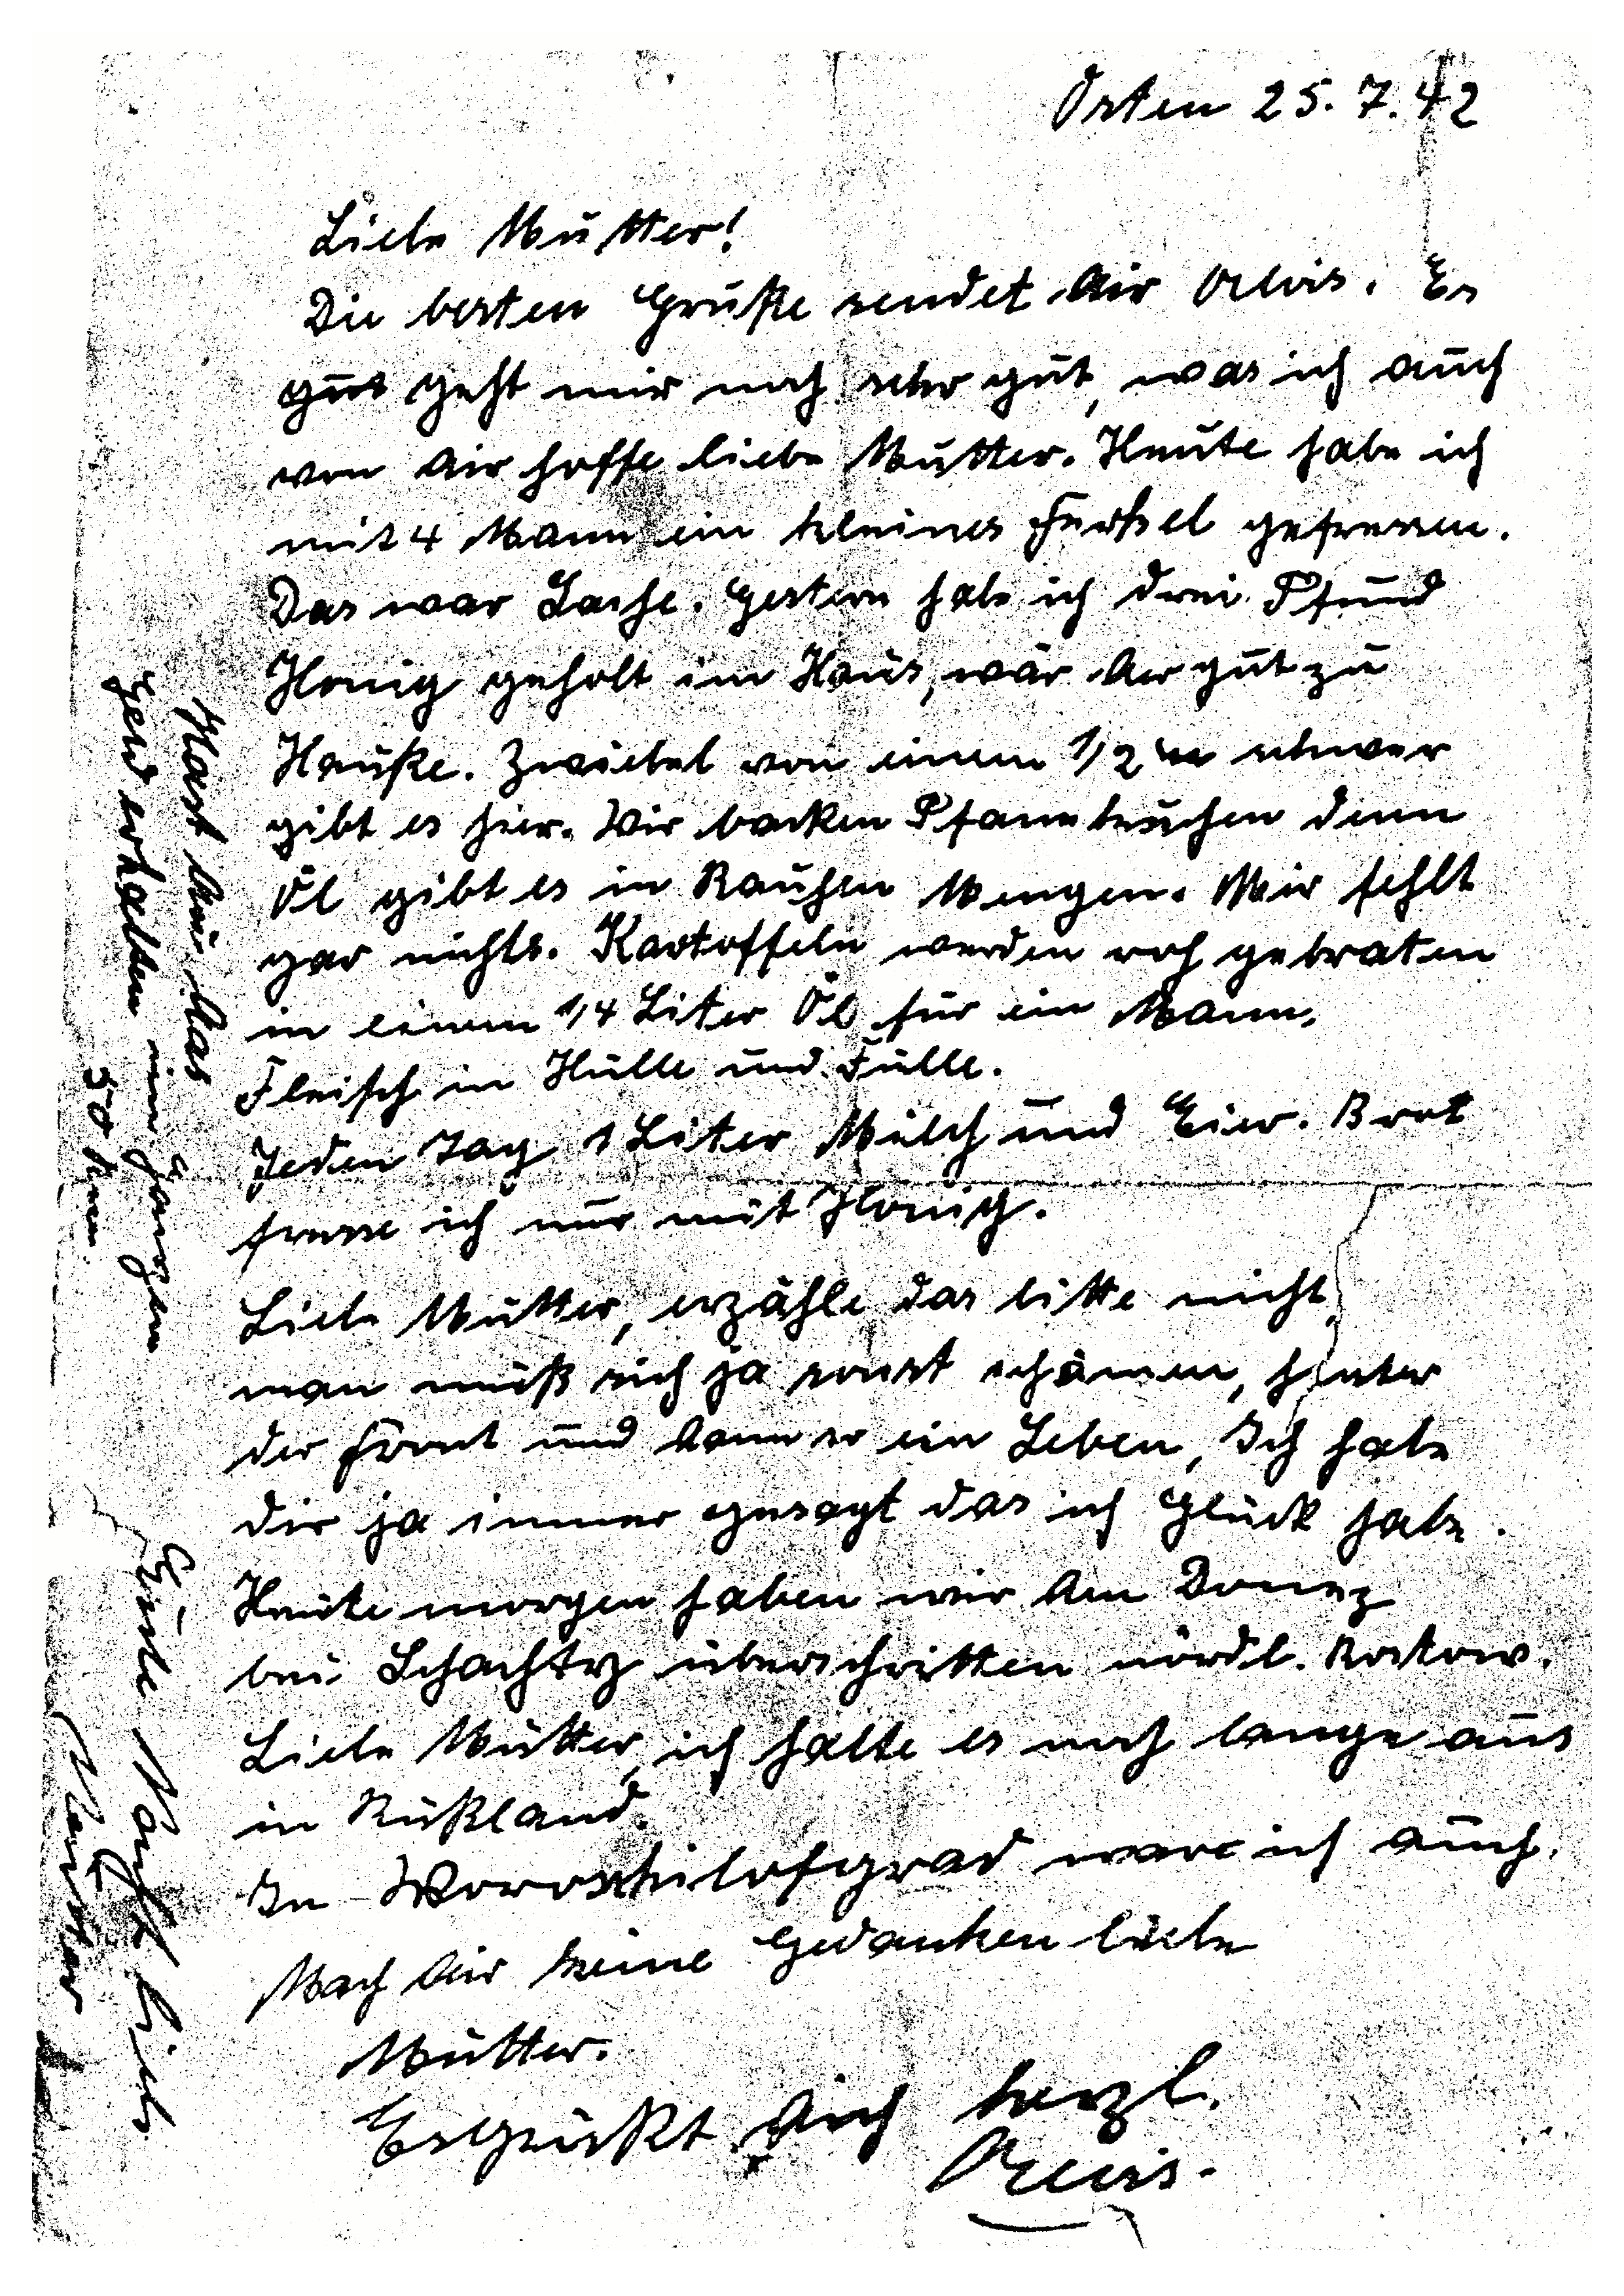 Osten 25.7.42
Liebe Mutter!
Die besten Grüße sendet Dir Alois. Es
gut geht mir noch sehr gut, was ich auch
von Dir hoffe liebe Mutter. Heute habe ich
mit 4 Mann ein kleines Ferkel gefressen.
Das war Sache. Gestern habe ich drei Pfund
Honig geholt im Haus, wär der gut zu
Hauße. Zwiebel von einem 1/2 schwer
gibt es hier. Wir backen Pfannkuchen denn
Öl gibt es in Rauhen Mengen. Mir fehlt
gar nichts. Kartoffeln werden roh gebraten
in einem 1/4 Liter Öl für ein Mann.
Fleisch in Hülle und Fülle.
Jeden Tag 1 Liter Milch und Eier. Brot
fresse ich nur mit Honig.
Liebe Mutter, erzähle das bitte nicht
man muß sich ja sonst schämen, hinter
der Front und dann so ein Leben, Ich habe
dir ja immer gesagt das ich Glück habe.
Heute morgen haben wir den Donez
bei Schachty überschritten nördl. Rostow.
Liebe Mutter, ich halte es noch lange aus
in Rußland.
In Woroschilofgrad ware ich auch.
Mach Dir keine Gedanken liebe
Mutter.
Es grüßt Dich herzl.
Alois.
Hast Du das
Geld erhalten im Ganzen
50